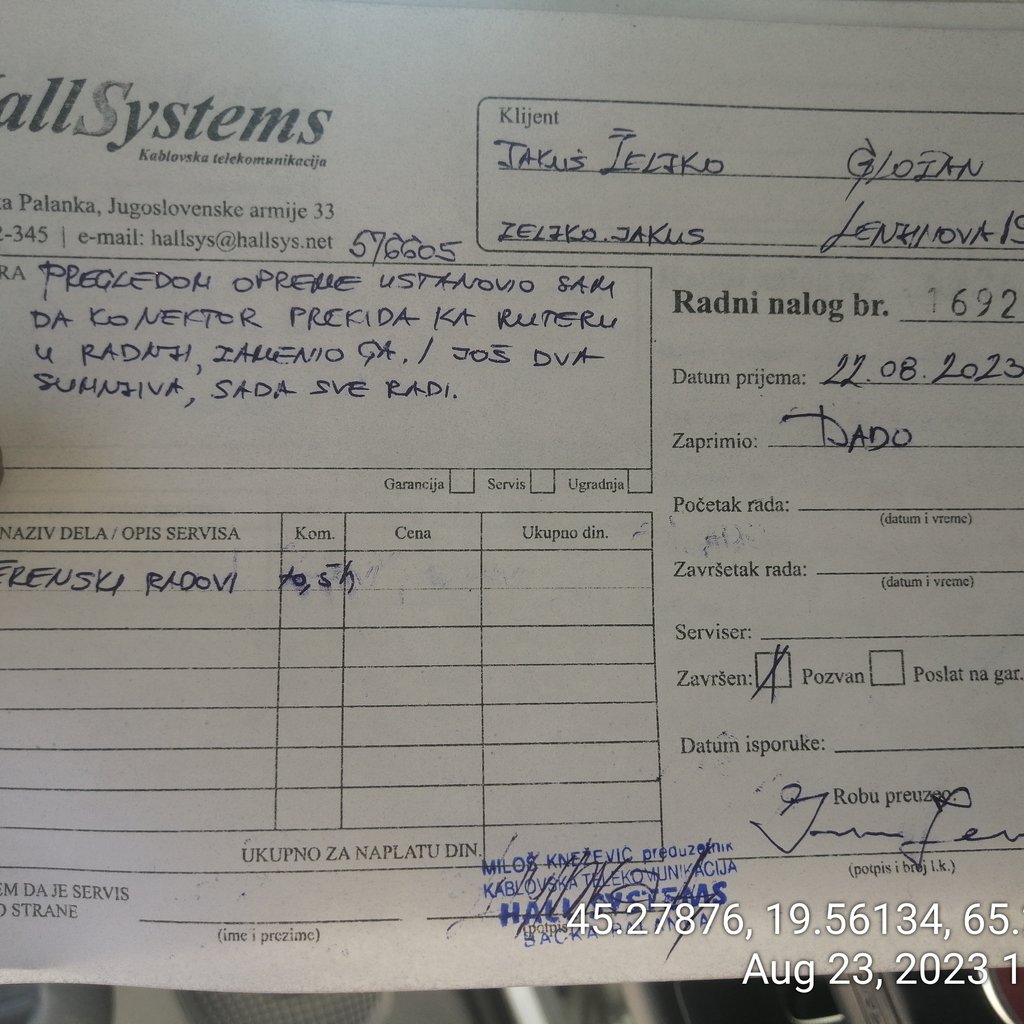 allSystems
Kablovska telekomunikacija
a Palanka, Jugoslovenske armije 33
2-345 | e-mail: hallsys@hallsys.net 576605
Klijent
JAKUŠ ŽELJKO GLOŽAN
ZELJKO.JAKUS LENJINOVA 19
RA PREGLEDOM OPREME USTANOVIO SAM
DA KONEKTOR PREKIDA KA RUTERU
U RADNJI, ZAMENIO GA. / JOŠ DVA
SUMNJIVA, SADA SVE RADI.
Garancija Servis Ugradnja
Radni nalog br. 1692
Datum prijema: 22.08.2023
Zaprimio: DADO
Početak rada:
(datum i vreme)
Završetak rada:
(datum i vreme)
Serviser:
Završen: Pozvan Poslat na gar.
Datum isporuke:
Robu preuzeo:
(potpis i broj l.k.)
NAZIV DELA / OPIS SERVISA Kom. Cena Ukupno din.
ERENSKI RADOVI 0,5 h
UKUPNO ZA NAPLATU DIN.
EM DA JE SERVIS
O STRANE
(ime i prezime)
(potpis
MILOŠ KNEŽEVIĆ preduzetnik
KABLOVSKA TELEKOMUNIKACIJA
HALL SYSTEMS
BAČKA PALANKA
45.27876, 19.56134, 65.
Aug 23, 2023 1